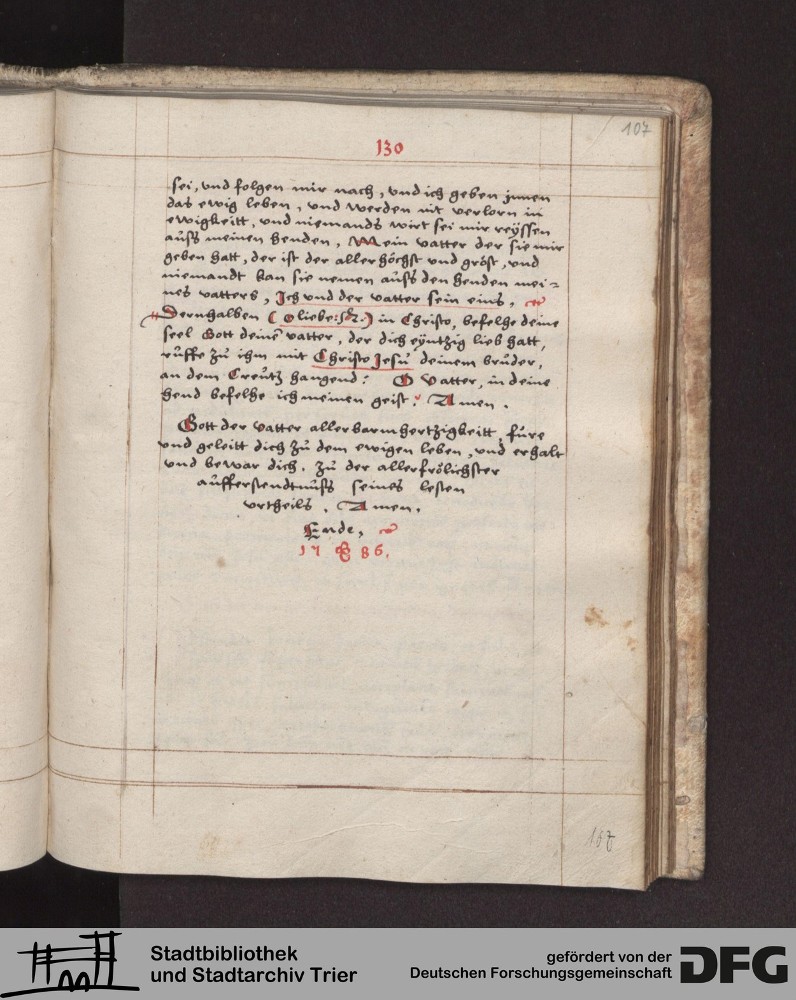 107
130
sei, vnd folgen mir nach, vnd ich geben jnnen
das ewig leben, vnd werden nit verlorn in
ewigkeitt, vnd niemands wirt sei mir reÿssen
aufs meinen henden, Mein vatter der sie mir
geben hatt, der ist der aller höchst vnd gröst, vnd
niemandt kan sie nemen aufs den henden mei=
nes vatters, Ich vnd der vatter sein eins,
Dernhalben (O liebe: in Christo, befelhe deine
seel Gott deinē vatter, der dich eÿntzig lieb hatt,
rüffe zů ihm mit Christo Jesu deinem brůder,
an dem Creütz hangend: O Vatter, in deine
hend befelhe ich meinen geist: Amen.
Gott der vatter aller barmhertzigkeitt, füre
vnd geleitt dich zů dem ewigen leben, vnd erhalt
vnd bewar dich, zů der allerfrölichster
aufferstendtnufs seines lesten
vrtheils. Amen.
Ende,
86.
Stadtbibliothek
und Stadtarchiv Trier
gefördert von der
Deutschen Forschungsgemeinschaft
DFG